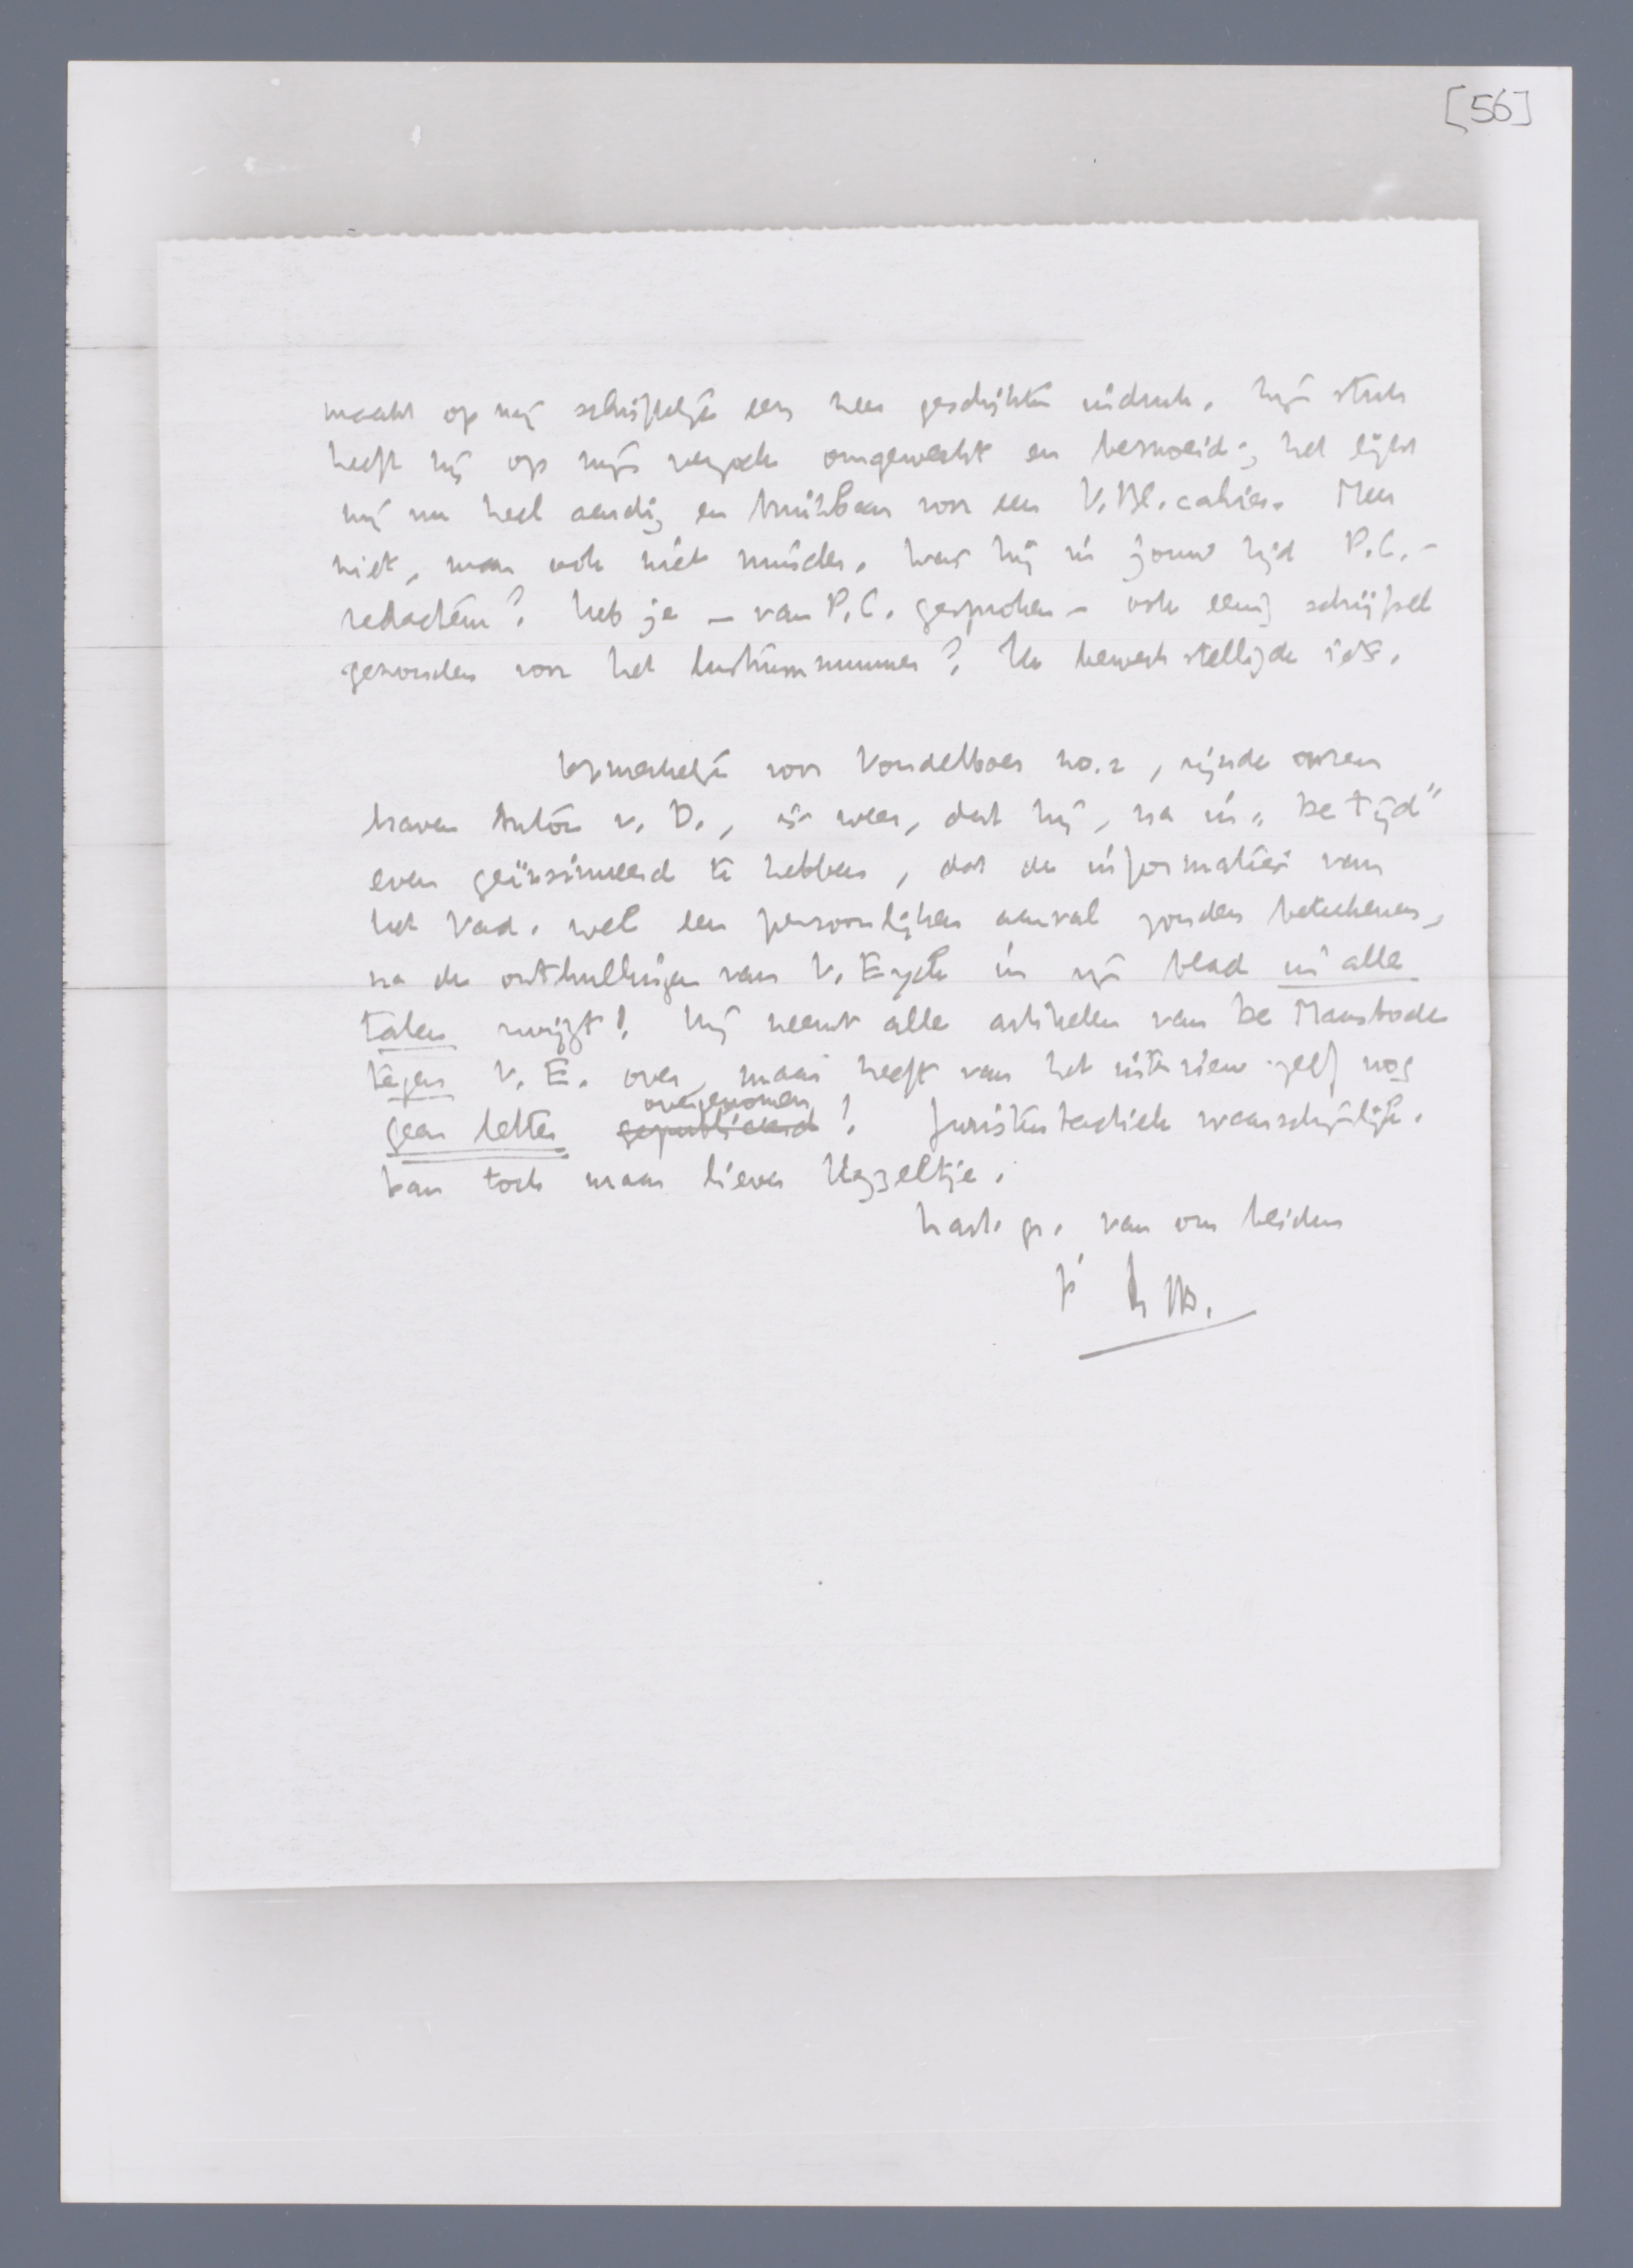 [56]
maakt op mij schriftelijk een zeer geschikten indruk. Zijn stuk
heeft hij op mijn verzoek omgewerkt en besnoeid; het lijkt
mij nu heel aardig en bruikbaar voor een V.Bl. cahier. Meer
niet, maar ook niet minder. Was hij in jouw tijd P.C.-
redacteur? Heb je – van P.C. gesproken – ook eenig schrijfsel
gezonden voor het lustrumnummer? Ik bewerkstelligde iets.
Opmerkelijk voor Vondelboer no. 2, zijnde onzen
braven Anton v. D., is weer, dat hij, na in "De Tijd"
even geïnsinueerd te hebben, dat de informaties van
het Vad. wel een persoonlijken aanval zouden beteekenen,
na de onthullingen van V. Eyck in zijn blad in alle
talen zwijgt! Hij neemt alle artikelen van De Maasbode
tegen V. E. over, maar heeft van het interview zelf nog
geen letter gepubliceerd overgenomen! Juristentactiek waarschijnlijk.
Dan toch maar liever Uzzeltje.
Hart. gr. van ons beiden